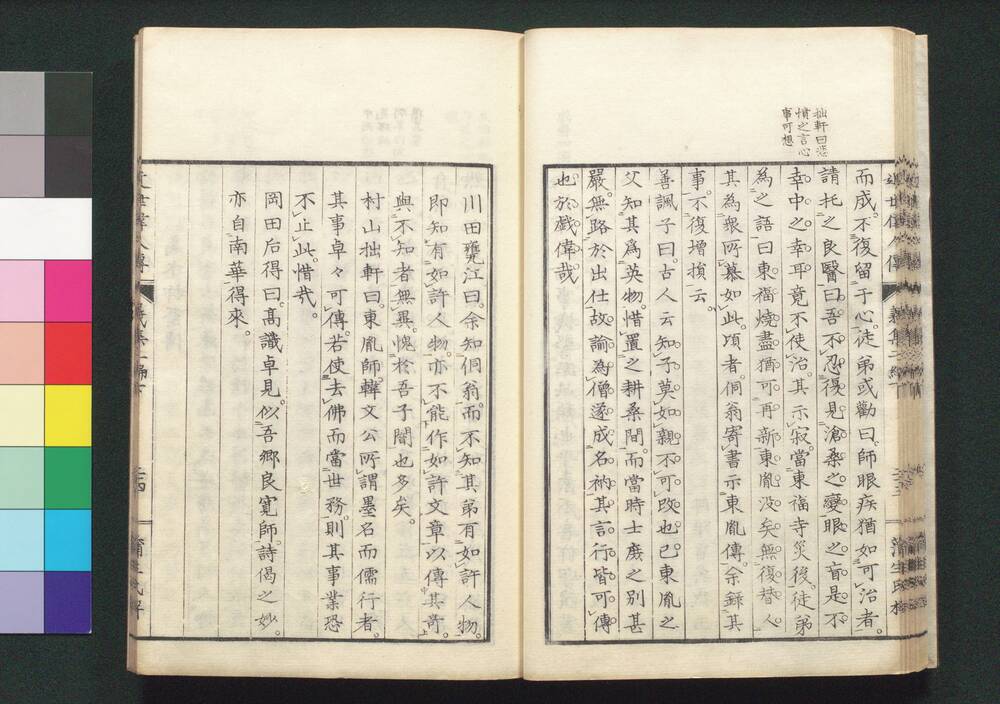 拙軒曰悲
憤之言心
事可想
而成不復留于心徒弟或勸曰師眼疾猶如可治者
請托之良醫曰吾不忍復見滄桑之變眼之盲是不
幸中之幸耳竟不使治其示寂當東福寺災後徒弟
為之語曰東福燒盡猶可再新東胤没矣無復替人
其為衆所慕如此頃者侗翁寄書示東胤傳余録其
事不復增損云
善諷子曰古人云知子莫如親不可改也已東胤之
父知其為英物惜置之耕桑間而當時士庶之別甚
嚴無路於出仕故諭為僧遂成名衲其言行皆可傳
也於戲偉哉
川田甕江曰余知侗翁而不知其弟有如許人物
即知有如許人物亦不能作如許文章以傳其奇
與不知者無異愧於吾子闇也多矣
村山拙軒曰東胤師韓文公所謂墨名而儒行者
其事卓々可傳若使去佛而當世務則其事業恐
不止此惜哉
岡田后得曰高識卓見似吾鄉良寛師詩偈之妙
亦自南華得來